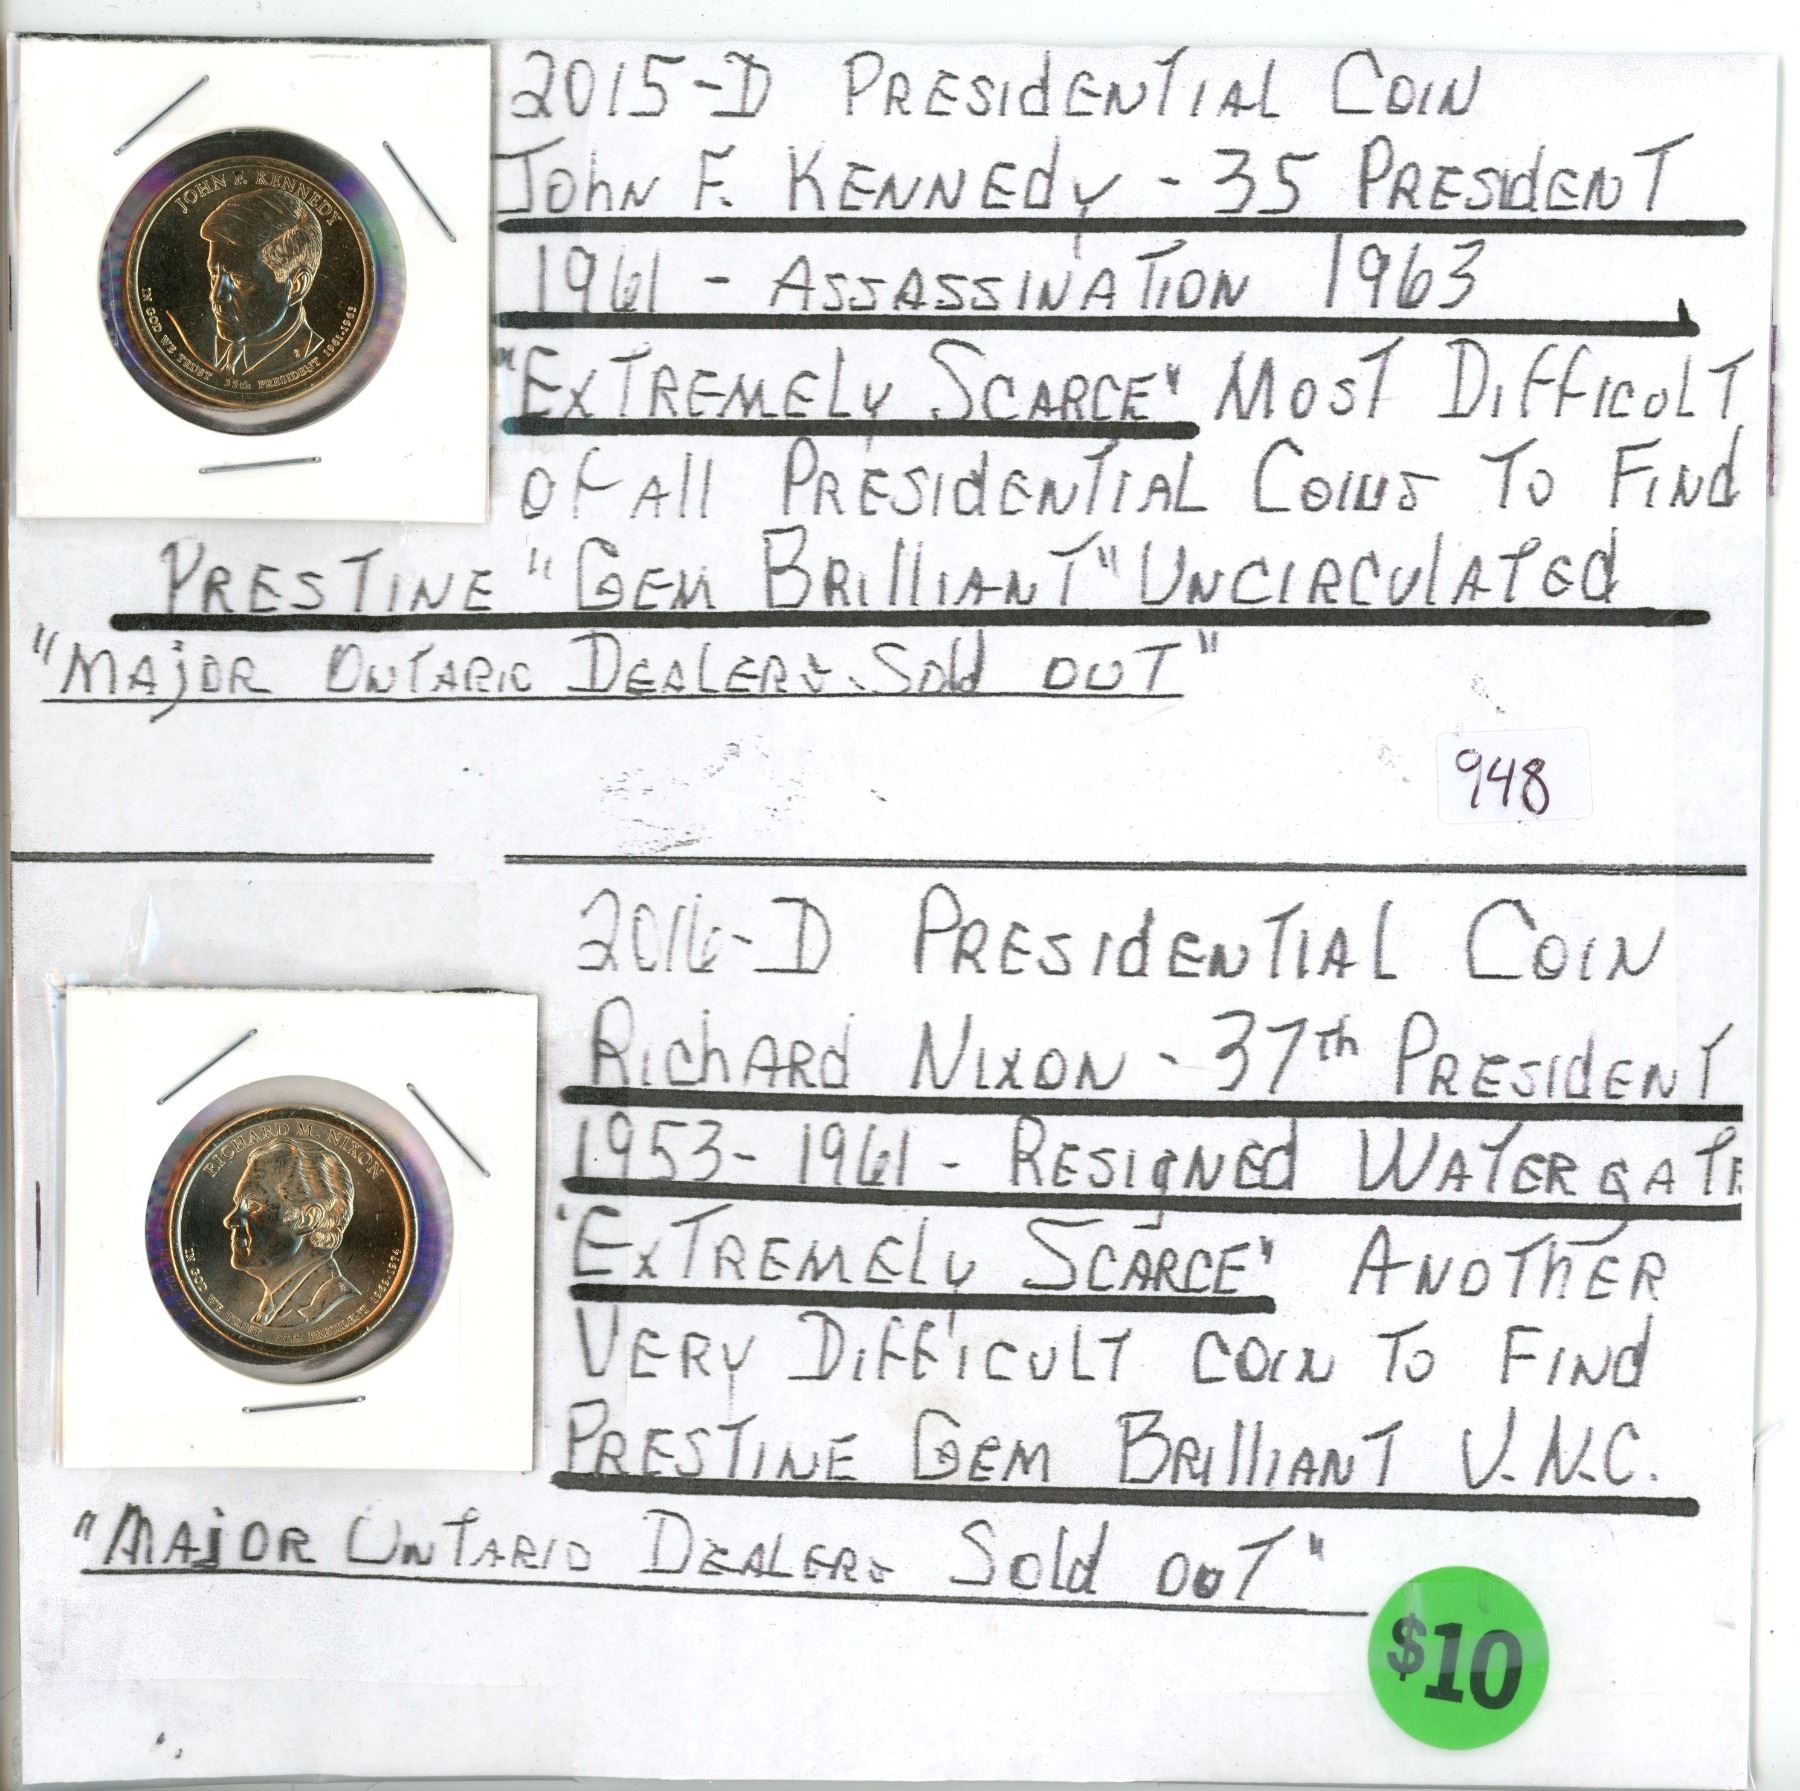 JOHN F. KENNEDY
IN GOD WE TRUST 35th PRESIDENT 1961-1963
2015-D PRESIdENTIAL COIN
JOhN F. KENNEdy - 35 PRESIdENT
1961 - ASSASSINATION 1963
"EXTREMELy SCARCE" MOST DIFFICULT
OF All PRESIdENTIAL COINS TO FINd
PRESTINE "GEM BRIllIANT" UNCIRCUlATEd
"MAjOR ONTARIO DEALERS Sold OUT"
948
2016-D PRESIdENTIAL COIN
RIChARd NIXON - 37th PRESIDENT
1953 - 1961 - RESIgNED WATERgATE
"EXTREMELy SCARCE" ANOThER
VERy DIFFICULT COIN TO FINd
PRESTINE GEM BRIllIANT U.N.C.
"MAjOR ONTARIO DEALERS Sold OUT"
RICHARD M. NIXON
IN GOD WE TRUST 37th PRESIDENT 1969-1974
$10